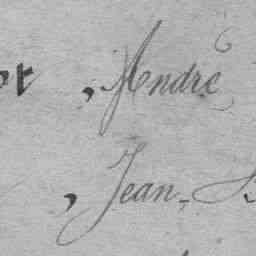 , André
, Jean-